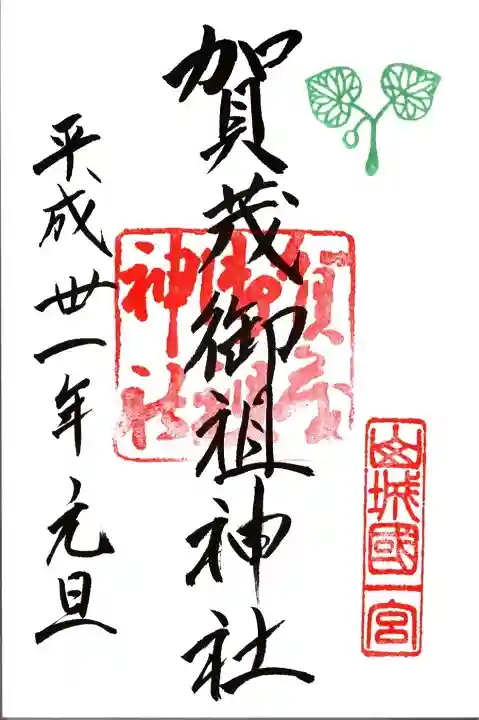 山城國一宮
賀茂御祖神社
賀茂
御祖
神社
平成丗一年元旦